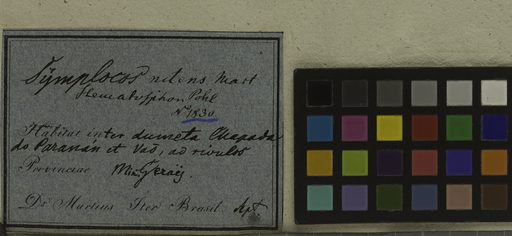 Symplocos nitens Mart
Pohl
No 1830
Habitat inter dumeta Chapada
do Paranan et Vao, ad rivulos
Provinciae Min Geraës.
Dr Martius Iter Brasil. Spt